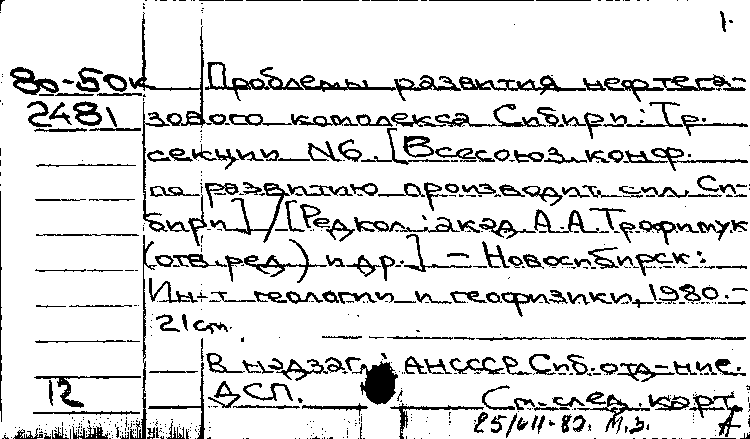 1.
80-50к Проблемы развития нефтега-
2481 зового комплекса Сибири: Тр.
секции N6. [Всесоюз. конф.
по развитию производит. сил. Си-
бири] / [Редкол.: акад. А.А. Трофимук
(отв. ред.) и др.] - Новосибирск:
Ин-т геологии и геофизики, 1980.-
21 cm.
В надзаг.: АНСССР Сиб. отд-ние.
12 ДСП. См. след. карт.
25/VII-82. М.З. А